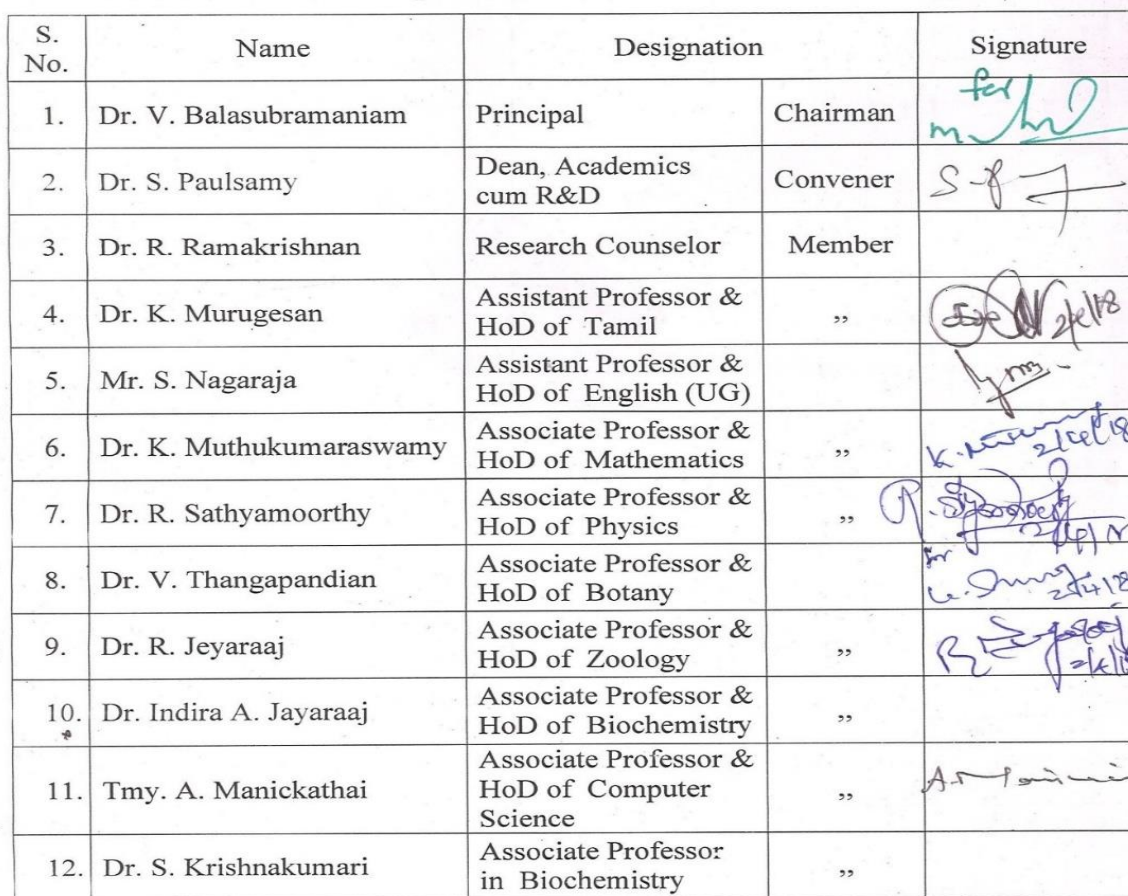 S. No. Name Designation Signature
1. Dr. V. Balasubramaniam Principal Chairman for
2. Dr. S. Paulsamy Dean, Academics cum R&D Convener
3. Dr. R. Ramakrishnan Research Counselor Member
4. Dr. K. Murugesan Assistant Professor & HoD of Tamil ,, 2/4/18
5. Mr. S. Nagaraja Assistant Professor & HoD of English (UG)
6. Dr. K. Muthukumaraswamy Associate Professor & HoD of Mathematics ,, 2/4/18
7. Dr. R. Sathyamoorthy Associate Professor & HoD of Physics ,,
8. Dr. V. Thangapandian Associate Professor & HoD of Botany for 2/4/18
9. Dr. R. Jeyaraaj Associate Professor & HoD of Zoology ,,
10. Dr. Indira A. Jayaraaj Associate Professor & HoD of Biochemistry ,,
11. Tmy. A. Manickathai Associate Professor & HoD of Computer Science ,,
12. Dr. S. Krishnakumari Associate Professor in Biochemistry ,,